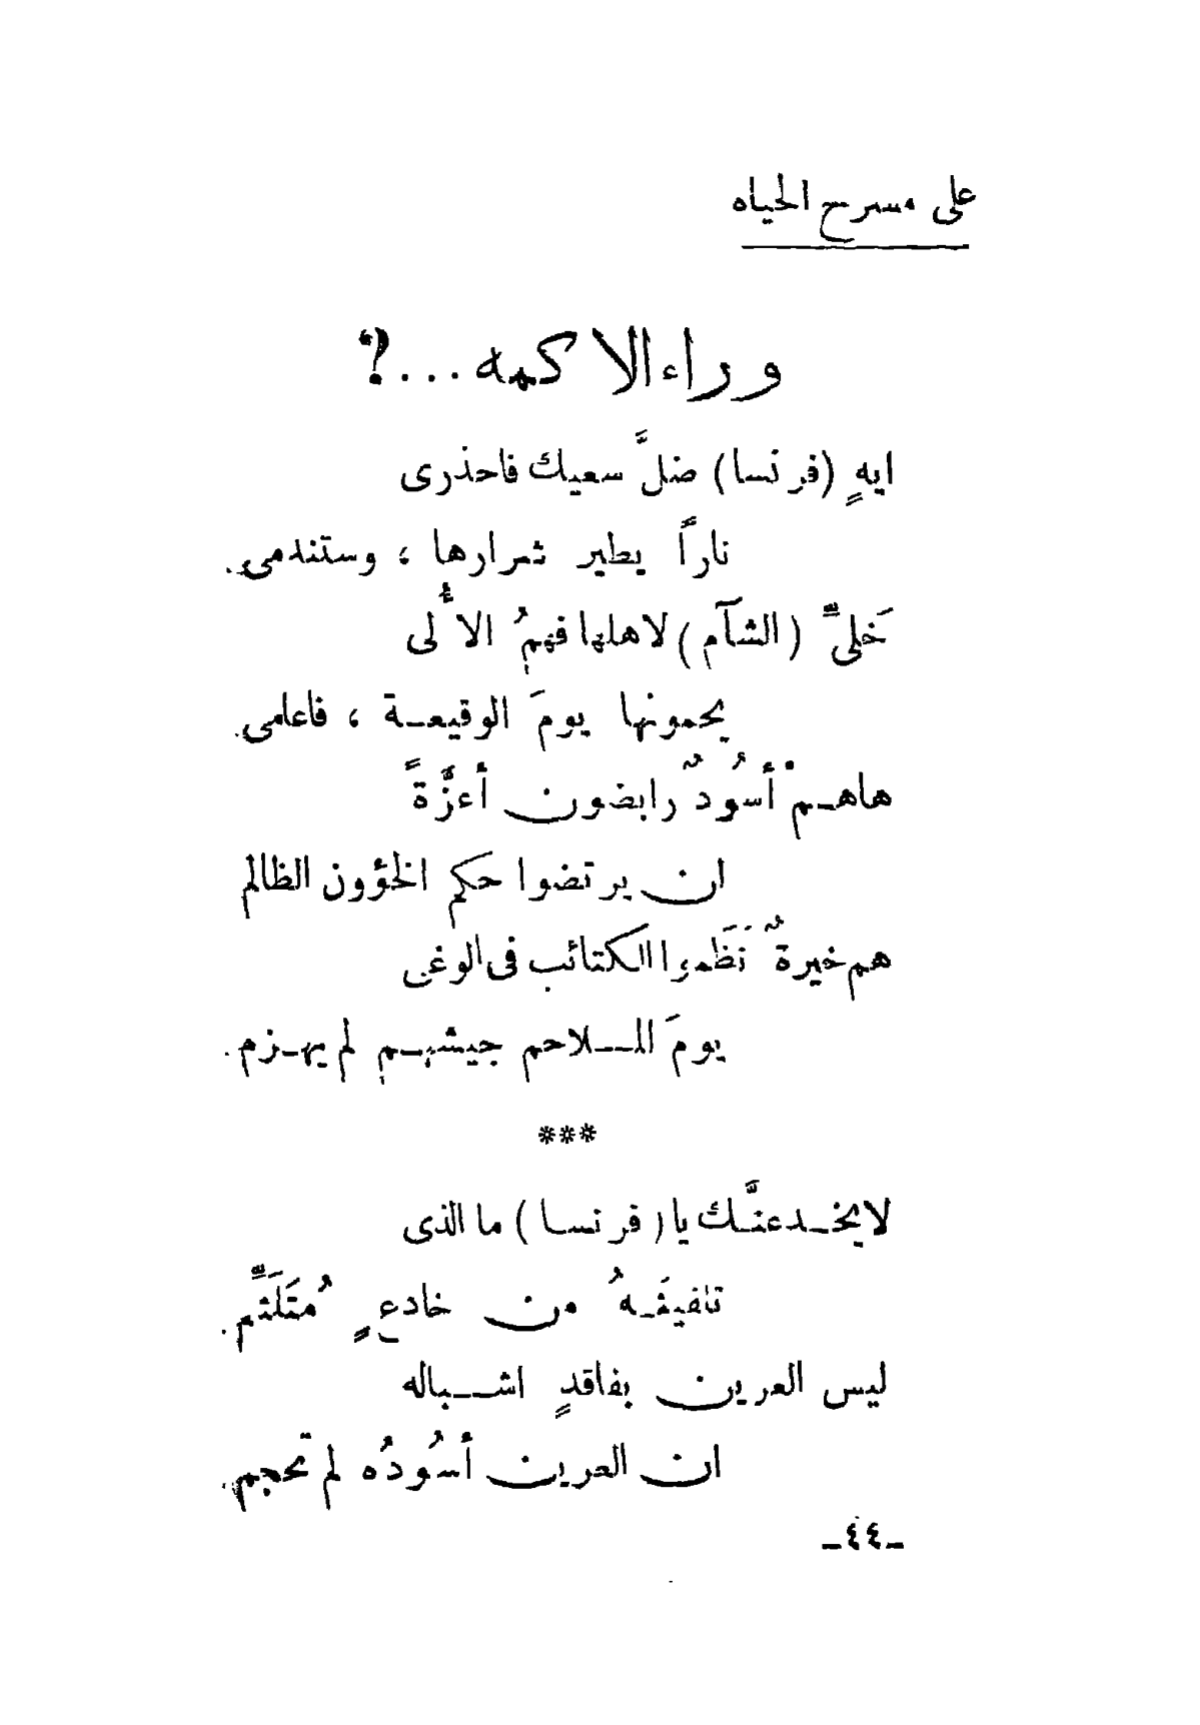 على مسرح الحياه
وراء الاكمه ...؟
ايهٍ (فرنسا) ضلَّ سعيك فاحذرى
ناراً يطير شرارها ، وستندمى.
خَلىِّ (الشآم) لاهلها فهمُ الأُلى
يحمونها يومَ الوقيعـة ، فاعلمى.
هاهـمْ أُسُودٌ رابضون أعزَّةً
ان يرتضوا حكم الخؤون الظالم
هم خيرةٌ نَظَموا الكتائب فى الوغى
يومَ المــلاحم جيشهـم لم يهـزم.
***
لايخـدعنَّـك يا(فرنسـا) ما الذى
تلفينَـهُ من خادعٍ مُتَلَثِّم.
ليس العرين بفاقدٍ اشــباله
ان العرين أُسُودُه لم تحجم.
-٤٤-